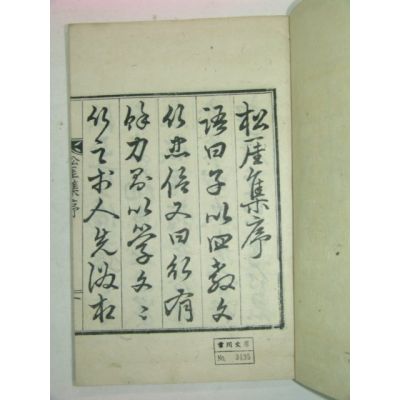 松厓集序
語曰子以四教文
行忠信又曰行有
餘力則以學文〻
行之於人先後本
松厓集序
一
No. 3135